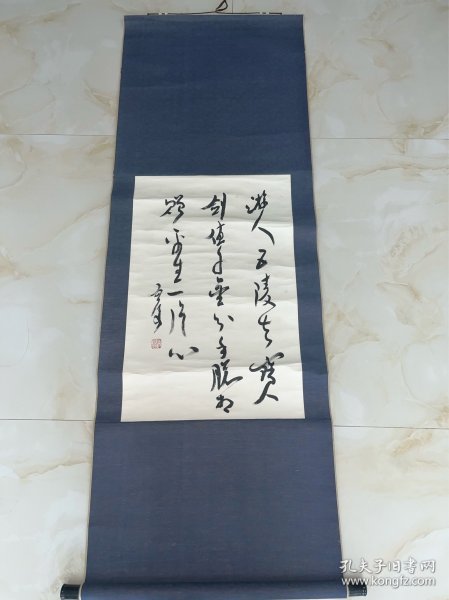 游人五陵去寶
劍值千金分手脱相
贈平生一片心
孔夫子旧书网
www.kongfz.com